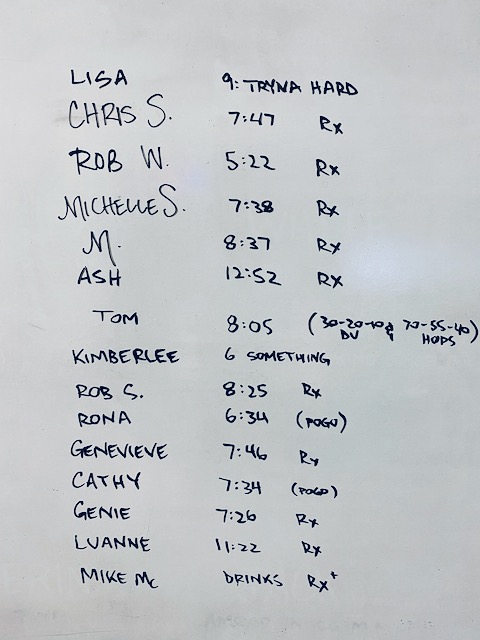 LISA 9: TRYNA HARD
CHRIS S. 7:47 Rx
ROB W. 5:22 Rx
MICHELLE S. 7:38 Rx
M. 8:37 Rx
ASH 12:52 Rx
TOM 8:05 (30-20-10 & 70-55-40)
DU HOPS
KIMBERLEE 6 SOMETHING
ROB S. 8:25 Rx
RONA 6:34 (POGO)
GENEVIEVE 7:46 Rx
CATHY 7:34 (POGO)
GENIE 7:26 Rx
LUANNE 11:22 Rx
MIKE Mc DRINKS Rx+